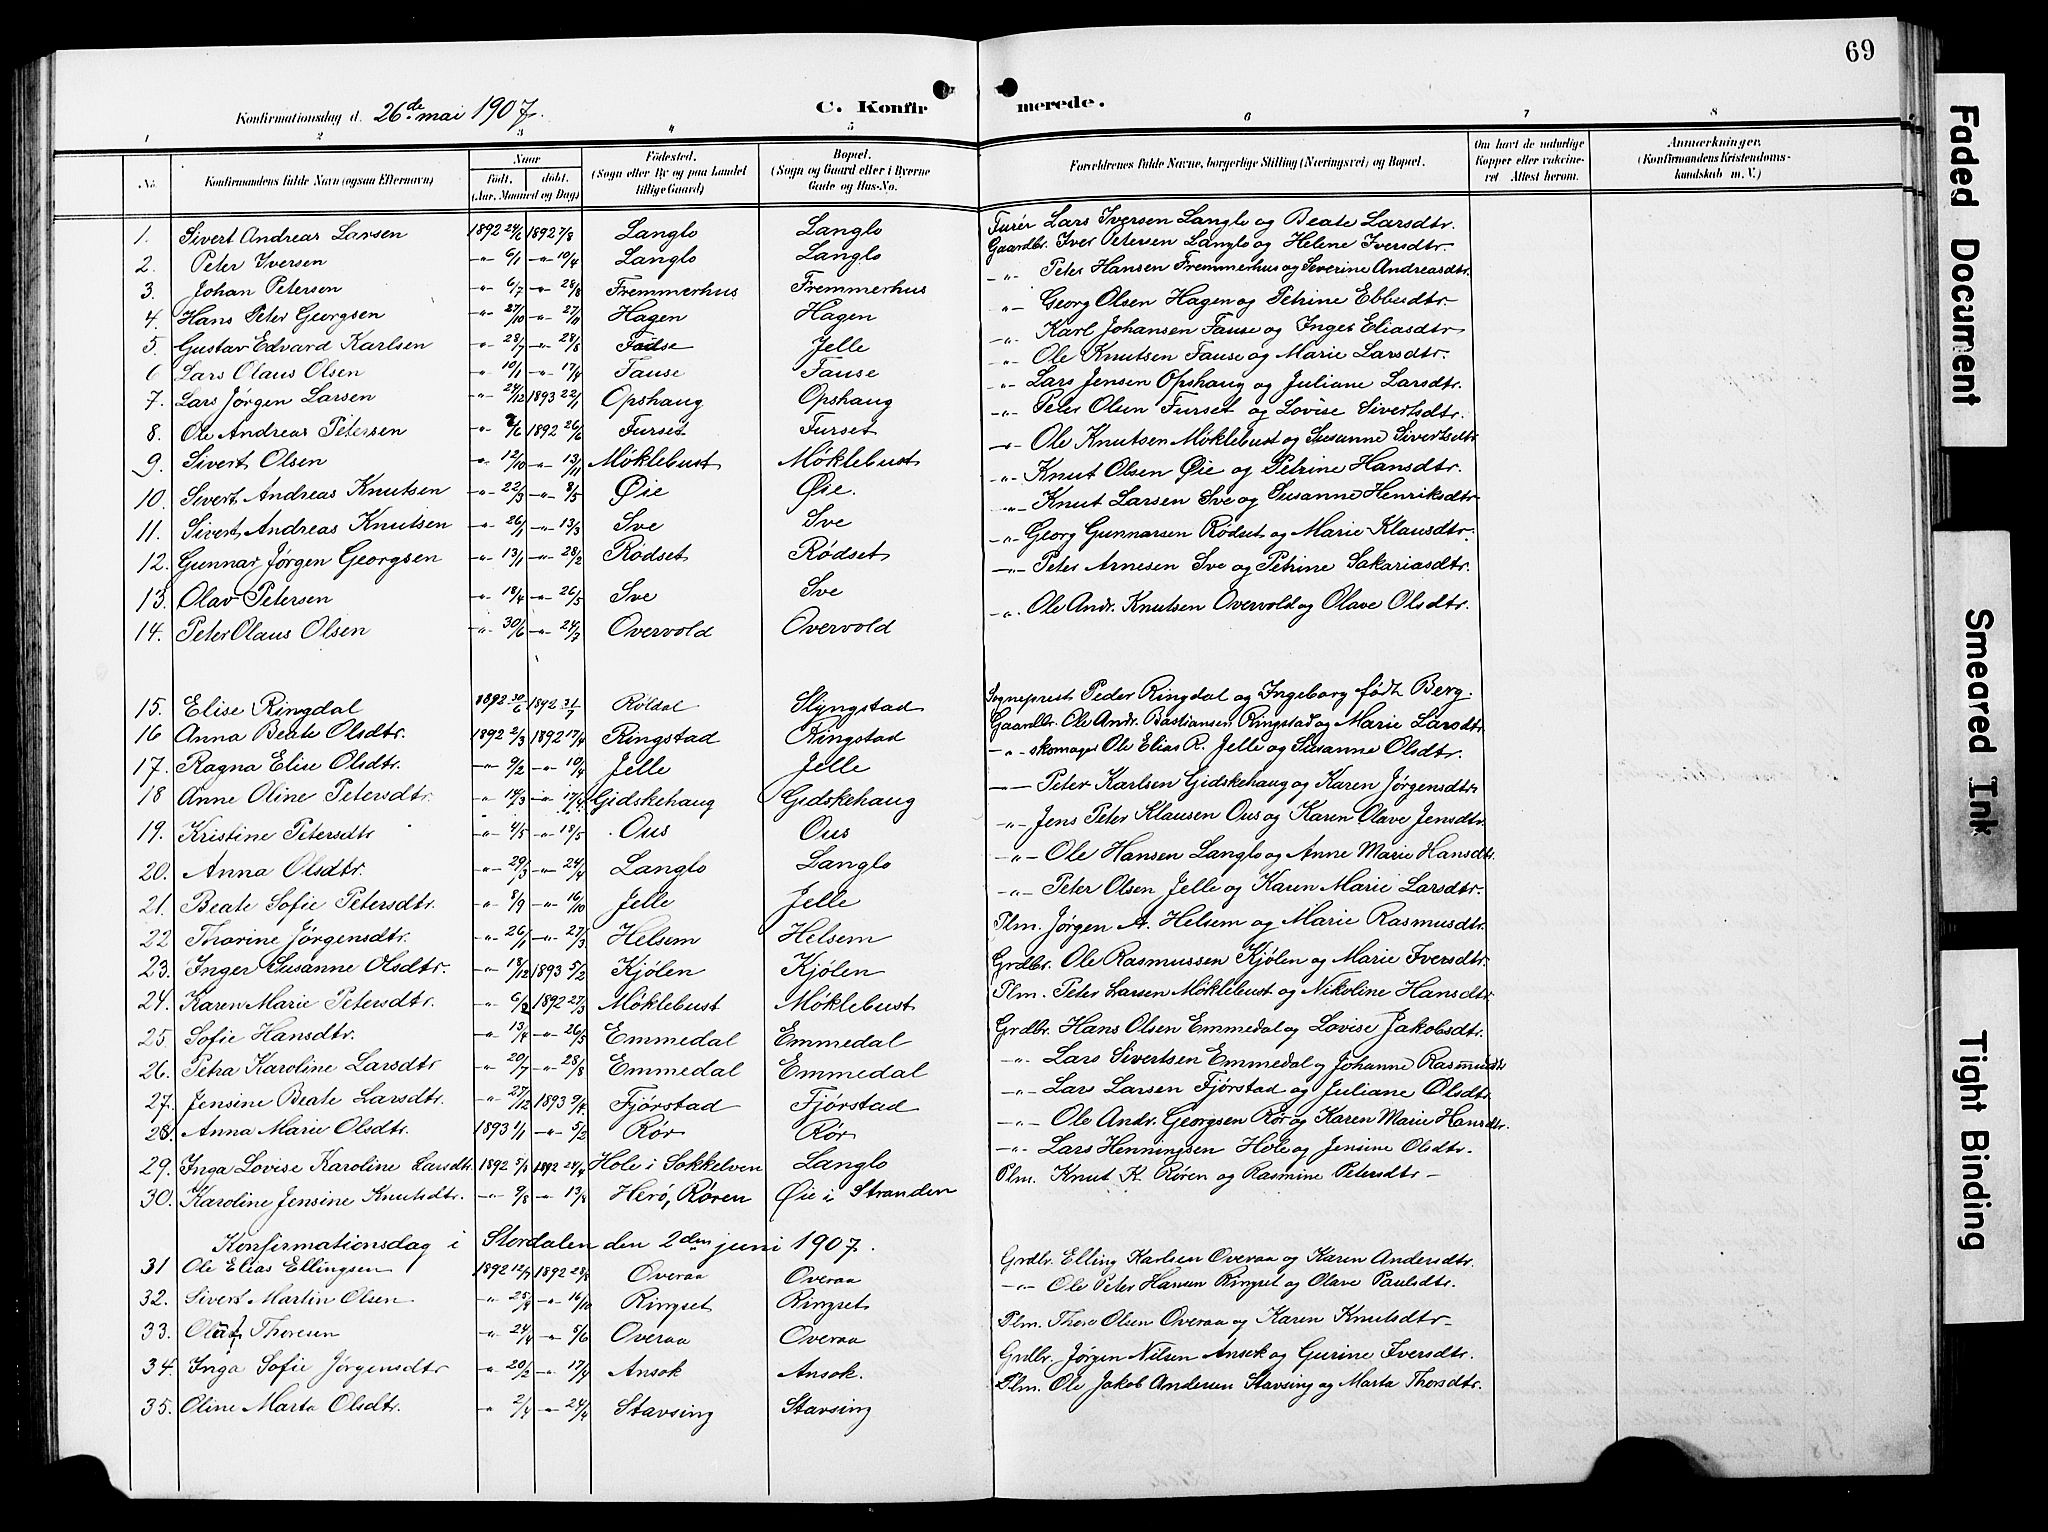 69
Konfirmationsdag d. 26de mai 1907. C. Konfirmerede.
1 2 3 4 5 6 7 8
No. Konfirmandens fulde Navn (ogsaa Efternavn) Naar født, døbt. (Aar, Maaned og Dag) Fødested. (Sogn eller By og paa Landet tillige Gaard) Bopæl. (Sogn og Gaard eller i Byerne Gade og Hus-No. Forældrenes fulde Navne, borgerlige Stilling (Næringsvei) og Bopæl. Om havt de naturlige Kopper eller vakcineret. Attest herom. Anmærkninger. (Konfirmandens Kristendomskundskab m. V.)
1. Sivert Andreas Larsen 1892 24/6 1892 7/8 Langlo Langlo Lars Iversen Langlo og Beate Larsdtr.
2. Peter Iversen -"- 6/1 -"- 10/4 Langlo Langlo Gaardbr. Iver Petersen Langlo og Helene Iversdtr.
3. Johan Petersen -"- 6/7 -"- 28/8 Fremmerhus Fremmerhus -"- Peter Hansen Fremmerhus og Severine Andreasdtr.
4. Hans Peter Georgsen -"- 27/10 -"- 27/11 Hagen Hagen -"- Georg Olsen Hagen og Petrine Ebbesdtr
5. Gustav Edvard Karlsen -"- 28/7 -"- 28/8 Fause Jelle -"- Karl Johansen Fause og Inger Eliasdtr
6 Lars Olaus Olsen -"- 10/1 -"- 17/4 Fause Fause -"- Ole Knutsen Fause og Marie Larsdtr.
7. Lars Jørgen Larsen -"- 24/12 1893 22/1 Opshaug Opshaug -"- Lars Jensen Opshaug og Juliane Larsdtr.
8. Ole Andreas Petersen -"- 1892 26/6 Furset Furset -"- Peter Olsen Furset og Lovise Sivertsdtr.
9. Sivert Olsen -"- 12/10 -"- 13/11 Møklebust Møklebust -"- Ole Knutsen Møklebust og Susanne Sivertsdtr
10. Sivert Andreas Knutsen -"- 22/3 -"- 8/5 Øie Øie. -"- Knut Olsen Øie og Petrine Hansdtr.
11. Sivert Andreas Knutsen -"- 26/1 -"- 13/3 Sve Sve -"- Knut Larsen Sve og Susanne Henriksdtr
12. Gunnar Jørgen Georgsen -"- 13/1 -"- 28/2 Rødset Rødset -"- Georg Gunnarsen Rødset og Marie Klausdtr.
13. Olav Petersen -"- 18/4 -"- 26/5 Sve Sve -"- Peter Arnesen Sve og Petrine Sakariasdtr.
14. Peter Olaus Olsen -"- 30/6 -"- 24/7 Overvold Overvold -"- Ole Andr. Knutsen Overvold og Olave Olsdtr.
15. Elise Ringdal 1892 30/6 1892 31/7 Røldal Slyngstad Sogneprest Peder Ringdal og Ingeborg født Berg.
16 Anna Beate Olsdtr. 1892 2/3 1892 17/4 Ringstad Ringstad Gaardbr. Ole Andr. Bastiansen Ringstad og Marie Larsdtr
17. Ragna Elise Olsdtr. -"- 9/2 -"- 10/4 Jelle Jelle -"- skomager Ole Elias R. Jelle og Susanne Olsdtr.
18 Anne Oline Petersdtr. -"- 14/3 -"- 17/4 Gidskehaug Gidskehaug -"- Peter Karlsen Gidskehaug og Karen Jørgensdtr
19. Kristine Petersdtr -"- 4/5 -"- 18/5 Ous Ous -"- Jens Peter Klausen Ous og Karen Olave Jensdtr.
20. Anna Olsdtr. -"- 29/3 -"- 24/4 Langlo Langlo -"- Ole Hansen Langlo og Anne Marie Hansdtr.
21. Beate Sofie Petersdtr. -"- 8/9 -"- 16/10 Jelle Jelle -"- Peter Olsen Jelle og Karen Marie Larsdtr.
22 Thorine Jørgensdtr. -"- 26/1 -"- 27/3 Helsem Helsem Plm. Jørgen A. Helsem og Marie Rasmusdtr.
23. Inger Susanne Olsdtr. -"- 18/12 1893 5/2 Kjølen Kjølen Grdbr. Ole Rasmussen Kjølen og Marie Iversdtr.
24. Karen Marie Petersdtr. -"- 6/2 1892 27/3 Møklebust Møklebust Plm. Peter Larsen Møklebust og Nikoline Hansdtr.
25. Sofie Hansdtr. -"- 13/4 -"- 26/5 Emmedal Emmedal Grdbr. Hans Olsen Emmedal og Lovise Jakobsdtr.
26. Petra Karoline Larsdtr -"- 20/7 -"- 28/8 Emmedal Emmedal -"- Lars Sivertsen Emmedal og Johanne Rasmusdtr
27. Jensine Beate Larsdtr. -"- 27/12 1893 Fjørstad Fjørstad -"- Lars Larsen Fjørstad og Juliane Olsdtr.
28. Anna Marie Olsdtr. 1893 1/1 -"- 5/2 Rør Rør -"- Ole Andr. Georgsen Rør og Karen Marie Hansdtr.
29. Inga Lovise Karoline Larsdtr. 1892 1892 24/4 Hole i Søkkelven Langlo -"- Lars Henningsen Hole og Jensine Olsdtr.
30. Karoline Jensine Knutsdtr. -"- 9/8 -"- 13/8 Herø, Røren Øie i Stranden Plm. Knut K. Røren og Rasmine Petersdtr -
Konfirmationsdag i Stordalen den 2den juni 1907.
31 Ole Elias Ellingsen 1892 12/7 1892 28/8 Overaa Overaa Grdbr. Elling Karlsen Overaa og Karen Andersdtr.
32. Sivert Martin Olsen -"- 25/9 -"- 16/10 Ringset Ringset -"- Ole Peter Hansen Ringset og Olave Paulsdtr.
33. Olaf Thoresen -"- 24/4 -"- 5/6 Overaa Overaa Plm. Thore Olsen Overaa og Karen Knutsdtr -
34. Inga Sofie Jørgensdtr -"- 20/2 -"- 17/4 Ansok Ansok. Grdbr. Jørgen Nilsen Ansok og Gurine Iversdtr.
35. Oline Marta Olsdtr. -"- 2/4 -"- 24/4 Stavsing Stavsing Plm. Ole Jakob Andersen Stavsing og Marta Thorsdtr.
Faded Document
Smeared Ink
Tight Binding